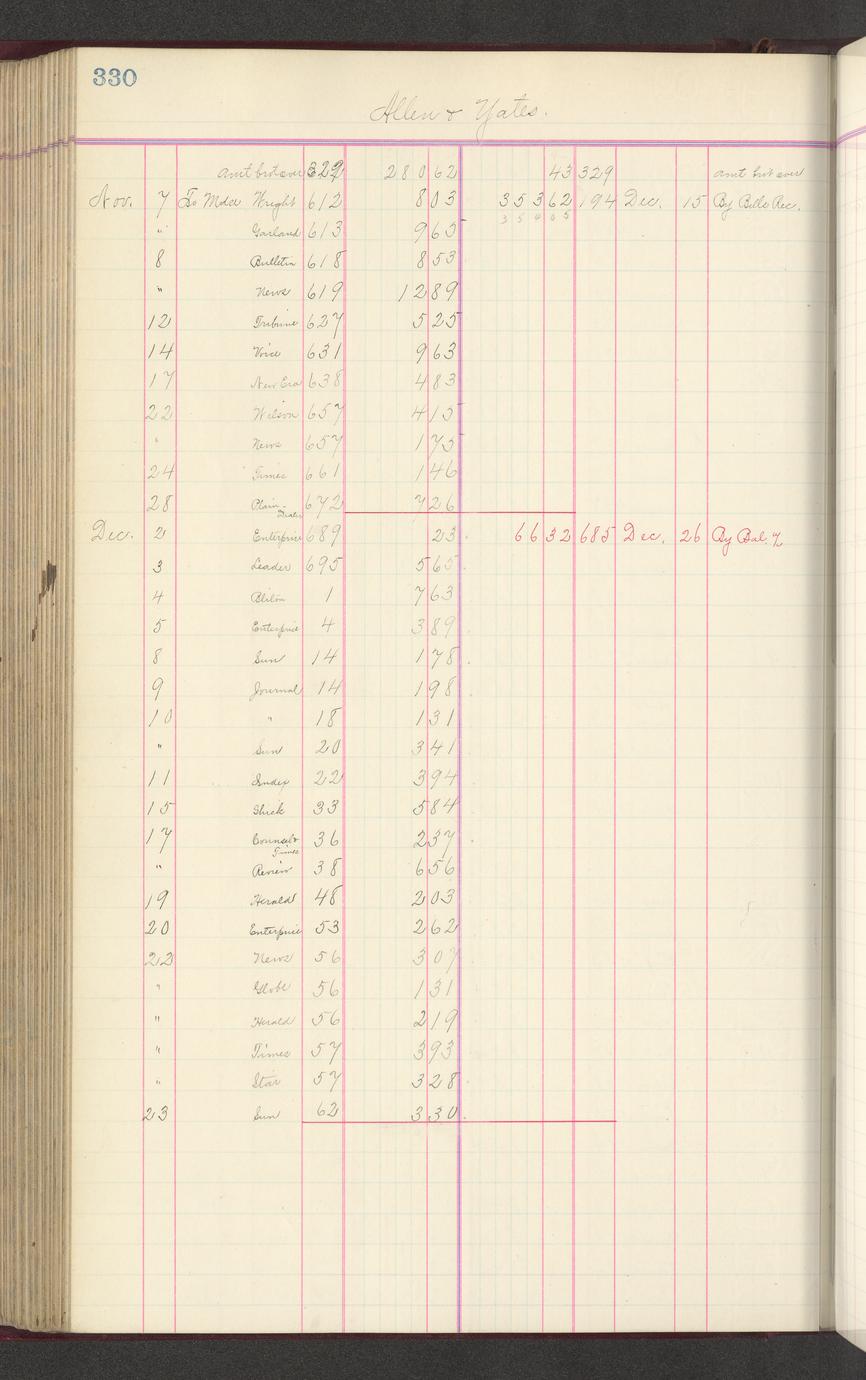 330
Allen & Yates.
amt brot over 329 280 62 43 329 amt brot over
Nov. 7 To Mdse Wright 612 8 03 353 62 194 Dec. 15 By Bills Rec.
" Garland 613 9 65 354 05
8 Bulletin 618 8 53
" News 619 12 89
12 Tribune 627 5 25
14 Voice 631 9 63
17 New Era 638 4 83
22 Wilson 657 4 15
" News 657 1 75
24 Times 661 1 46
28 Plain-Dealer 672 7 26
Dec. 2 Enterprise 689 23 66 32 685 Dec. 26 By Bal. %
3 Leader 695 5 65
4 1 7 63
5 Enterprise 4 3 89
8 Sun 14 1 78
9 Journal 14 1 98
10 " 18 1 31
" Sun 20 3 41
11 Index 22 3 94
15 Shick 33 5 84
17 Counsel & Times 36 2 37
" Review 38 6 56
19 Herald 48 2 03
20 Enterprise 53 2 62
22 News 56 3 07
" Globe 56 1 31
" Herald 56 2 19
" Times 57 3 93
" Star 57 3 28
23 Sun 62 3 30